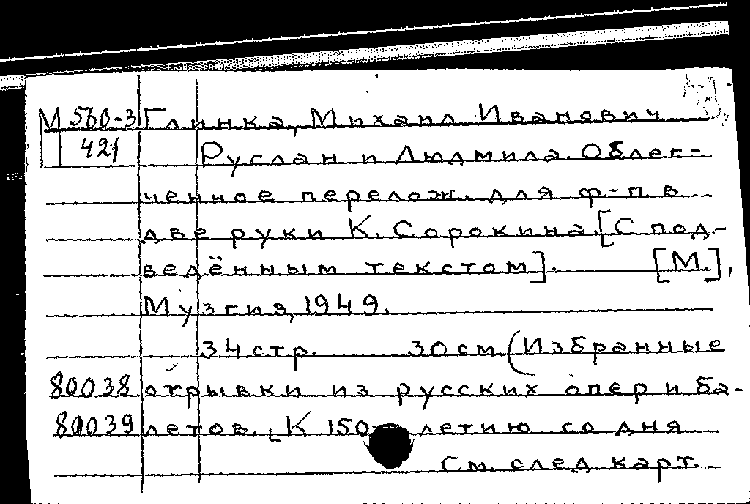 М 560-3 Глинка, Михаил Иванович
421 Руслан и Людмила. Облег-
ченное перелож. для ф-п. в
две руки К. Сорокина. [С под-
ведённым текстом]. [М.],
Музгиз, 1949.
34 стр. 30 см. (Избранные
80038 отрывки из русских опер и ба-
80039 летов. [К 150-летию со дня
См. след. карт.